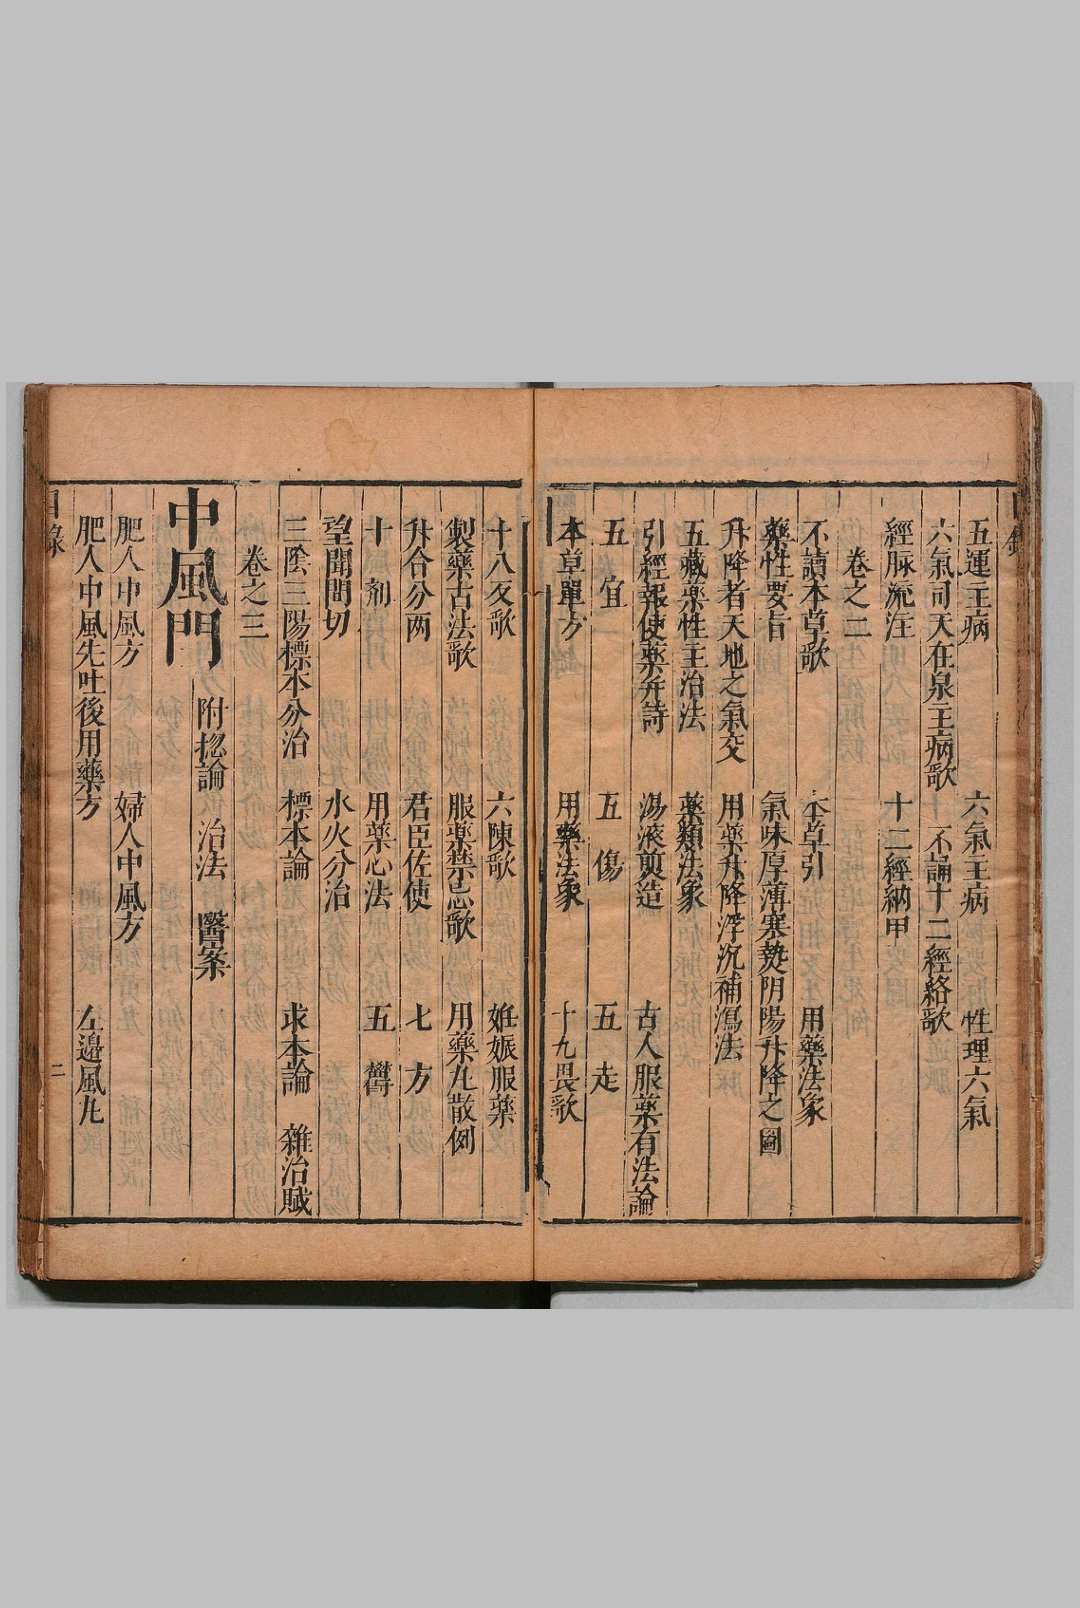 五運主病　六氣主病　性理六氣
六氣司天在泉主病歌　不誦十二經絡歌
經脉流注　十二經納甲
卷之二
不讀本草歌　本草引　用藥法象
藥性要旨　氣味厚薄寒熱陰陽升降之圖
升降者天地之氣交　用藥升降浮沉補瀉法
五藏藥性主治法　藥類法象
引經報使藥并詩　湯液煎造　古人服藥有法論
五宜　五傷　五走
本草單方　用藥法象　十九畏歌
十八反歌　六陳歌　姙娠服藥
製藥古法歌　服藥禁忌歌　用藥丸散例
升合分兩　君臣佐使　七方
十劑　用藥心法　五欝
望聞問切　水火分治
三陰三陽標本分治　標本論　求本論　雜治賦
卷之三
中風門　附捴論　治法　醫案
肥人中風方　婦人中風方
肥人中風先吐後用藥方　左邊風丸
目錄　二